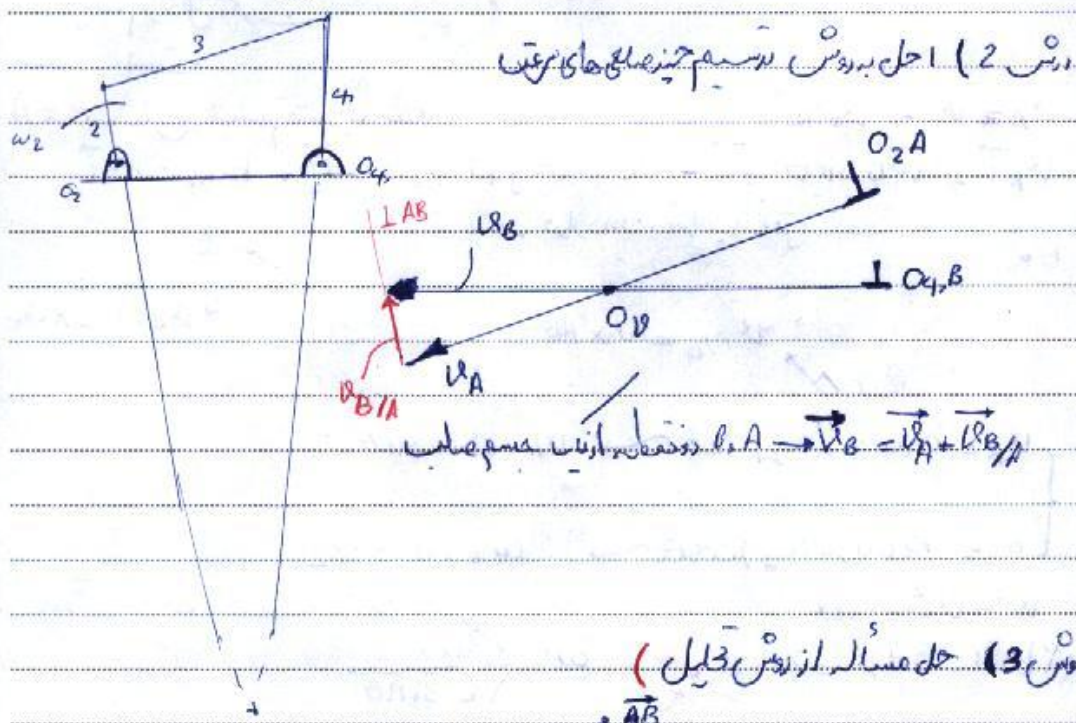 روش 2) حل به روش ترسیم چندضلعی های سرعت
3
2
4
ω2
O2
O4
O2A
⊥AB
VB
O4B
Ov
VA
VB/A
A و B دو نقطه از یک جسم صلب → VB = VA + VB/A
روش 3) حل مسأله از روش تحلیل)
AB